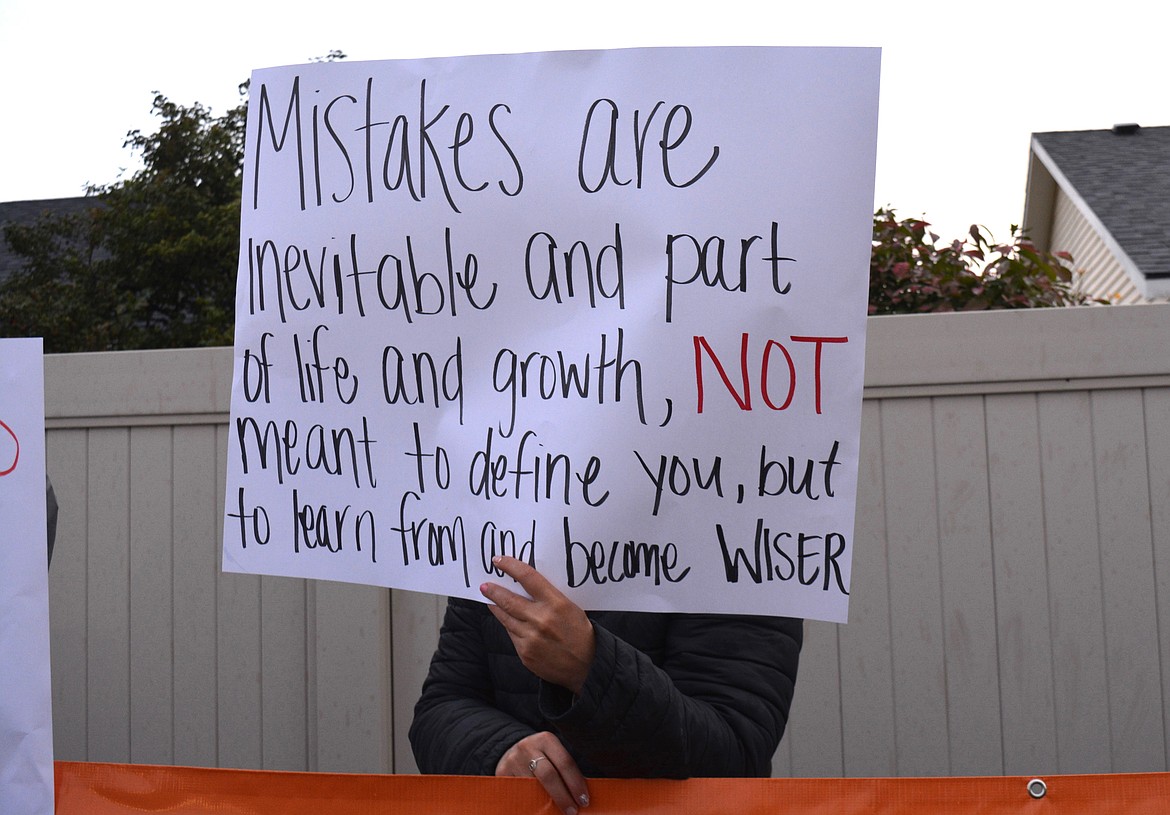 Mistakes are
Inevitable and part
of life and growth, NOT
meant to define you, but
to learn from and become WISER